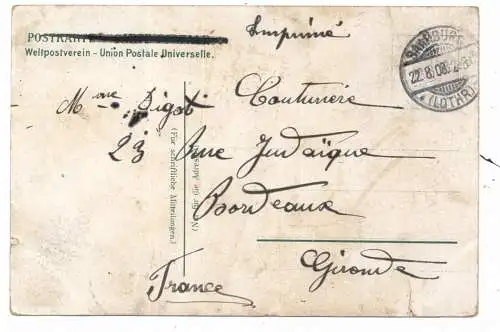 Imprimé
POSTKARTE
Weltpostverein - Union Postale Universelle.
SAARBURG
22.8.08.
* (LOTHR)
Mme Digot Couturière
23 Rue Judaïque
Bordeaux
Gironde
France
(Für schriftliche Mitteilungen.)
(Nur für die Adresse